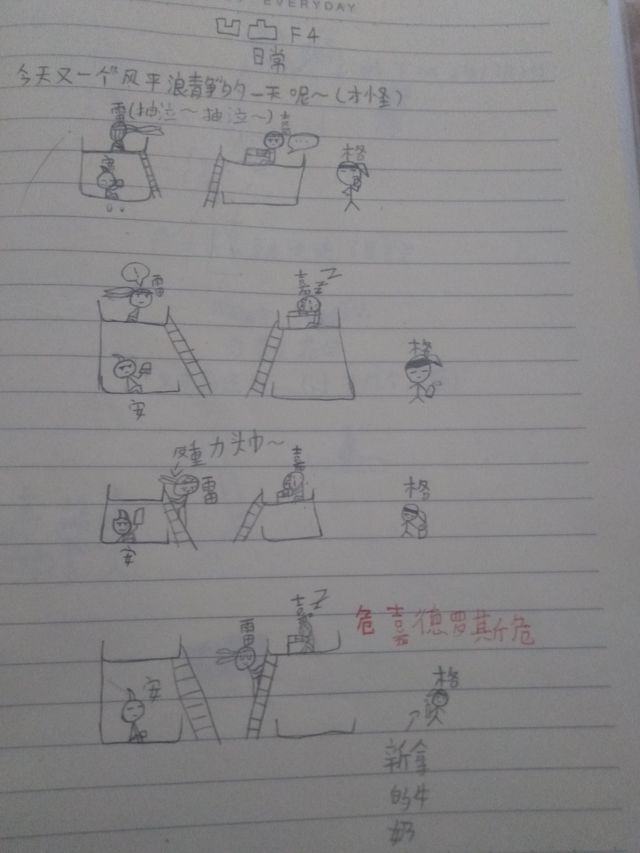 EVERYDAY
凹凸 F4
日常
今天又一个"风平浪静"的一天呢~(才怪)
雷(抽泣~抽泣~) 嘉
... 格
安
! 雷 嘉 Z Z
格
安
反重力头巾~
雷 嘉 格
安
雷 嘉 Z 危嘉德罗斯危
安 格
新拿
的牛
奶